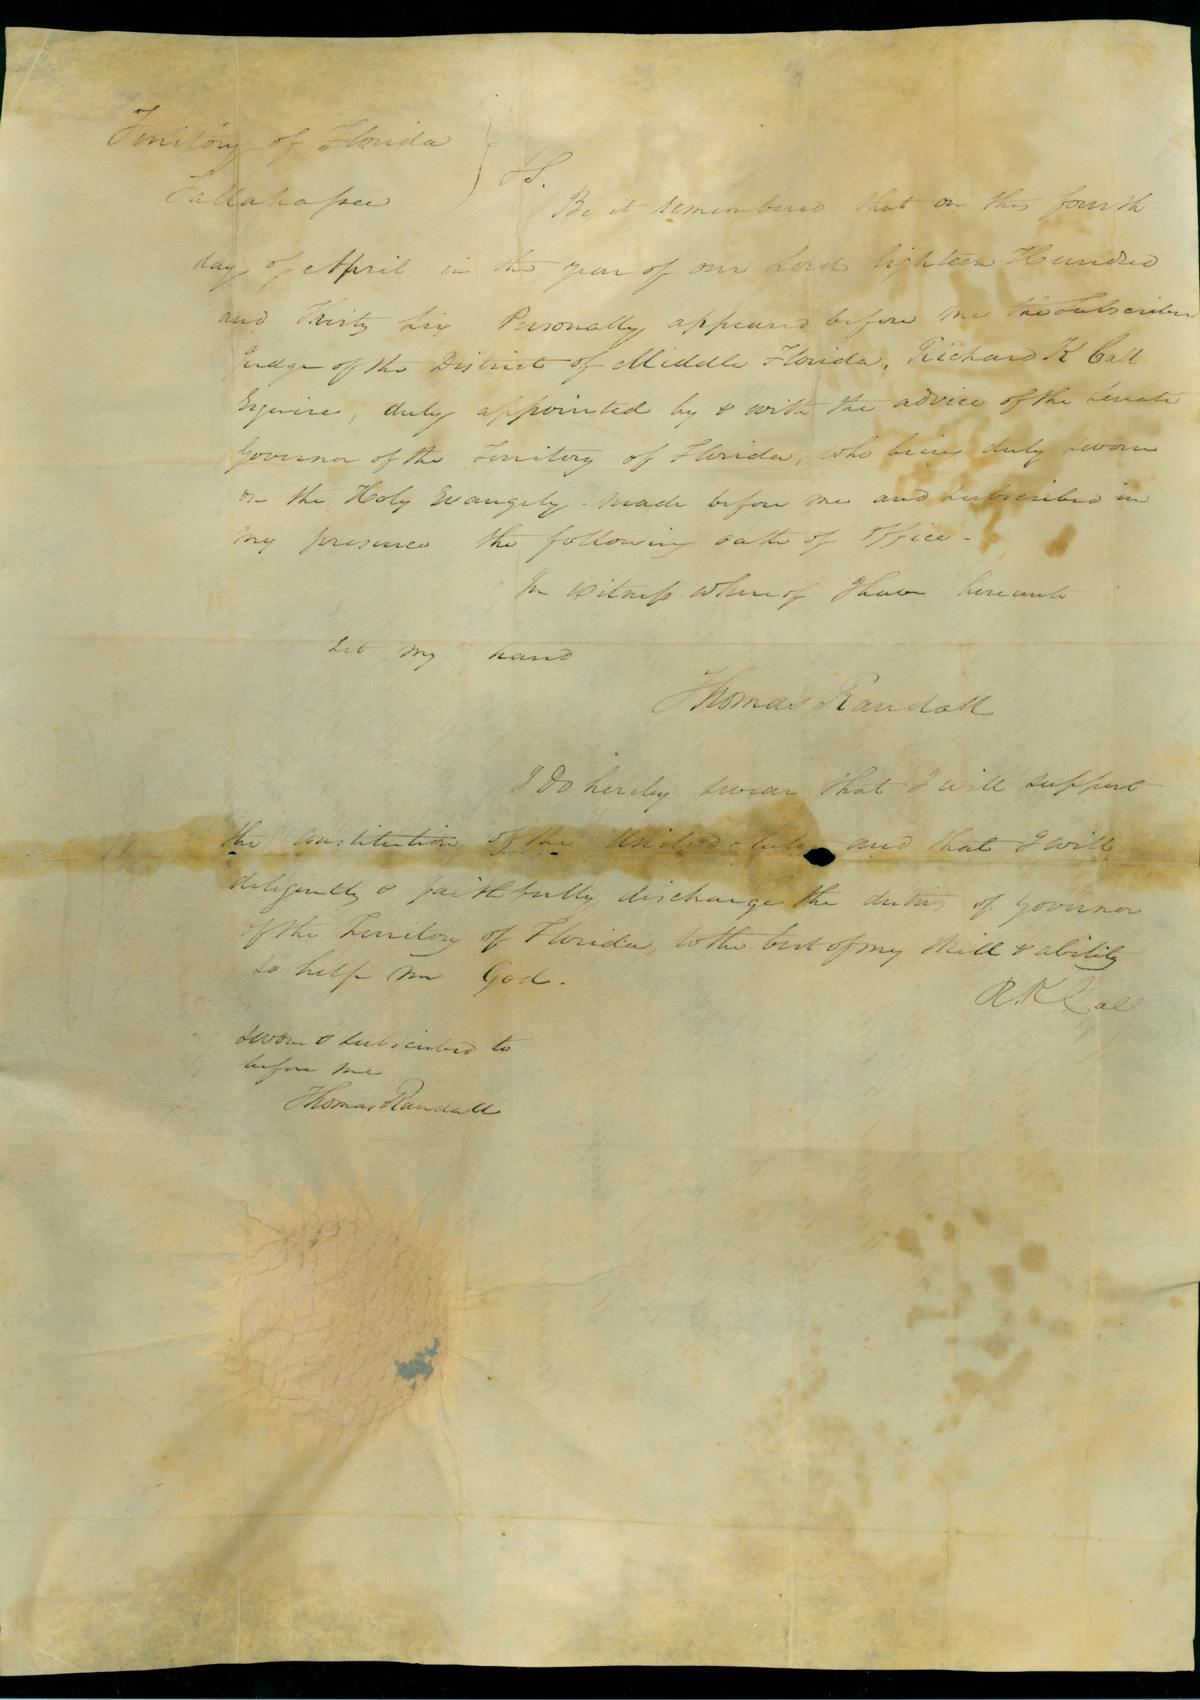 Territory of Florida
Tallahassee } SS.
Be it remembered that on this fourth
day of April in the year of our Lord Eighteen Hundred
and Thirty Six Personally appeared before me the Subscriber
Judge of the District of Middle Florida, Richard K Call
Esquire, duly appointed by & with the advice of the Senate
Governor of the Territory of Florida, who being duly sworn
on the Holy Evangely - made before me and subscribed in
my presence the following oath of office -
In witness whereof I have hereunto
set my hand
Thomas Randall
I Do hereby swear that I will support
the constitution of the United States and that I will
diligently & faithfully discharge the duties of Governor
of the Territory of Florida, to the best of my skill & ability
so help me God.
R K Call
sworn & subscribed to
before me
Thomas Randall